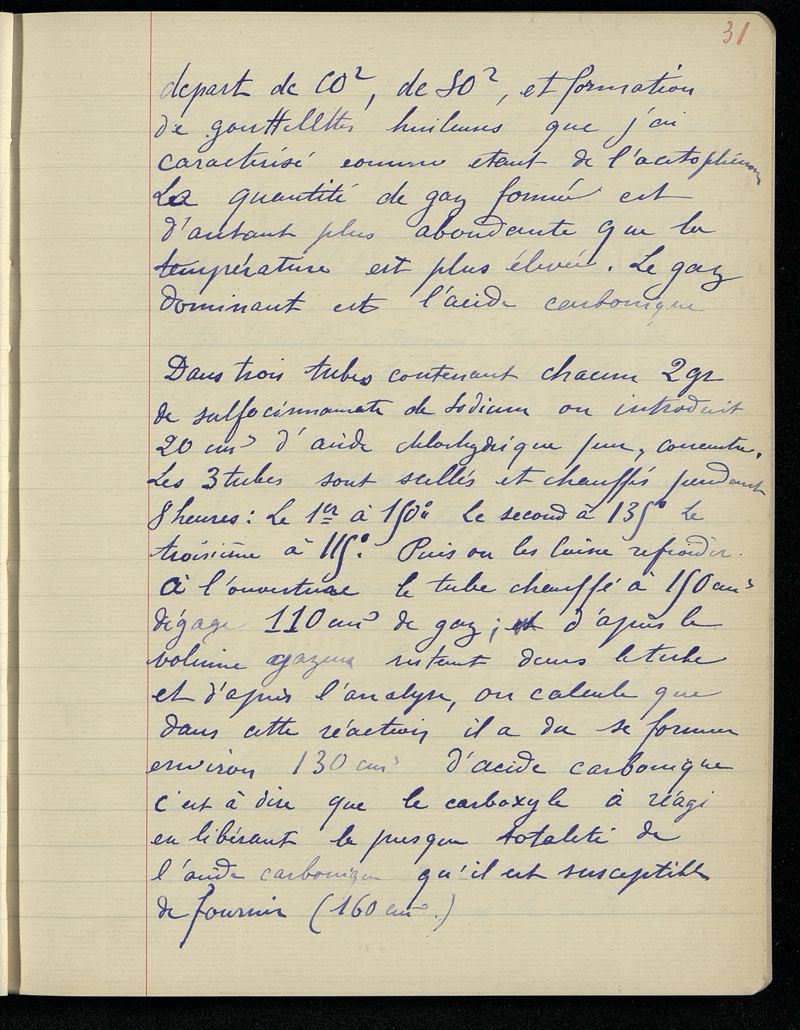 31
depart de CO², de SO², et formation
de gouttelettes huileuses que j'ai
caracterisé comme etant de l'acetophénone
La quantité de gaz formée est
d'autant plus abondante que la
température est plus élevée. Le gaz
dominant est l'acide carbonique
Dans trois tubes contenant chacun 2gr
de sulfocinnamate de Sodium on introduit
20 cm³ d'acide chlorhydrique pur, concentré.
Les 3 tubes sont scellés et chauffés pendant
8 heures: Le 1er à 150° Le second à 135° Le
troisième à 115°. Puis on les laisse refroidir.
à l'ouverture le tube chauffé à 150 cm³
dégage 110 cm³ de gaz; et d'après le
volume gazeux restant dans le tube
et d'après l'analyse, on calcule que
dans cette réaction il a du se former
environ 130 cm³ d'acide carbonique
c'est à dire que le carboxyle à réagi
en libérant la presque totalité de
l'acide carbonique qu'il est susceptible
de fournir (160 cm³.)